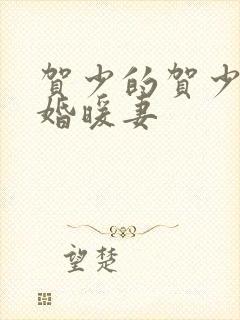 賀少的賀少
婚暖妻
望楚